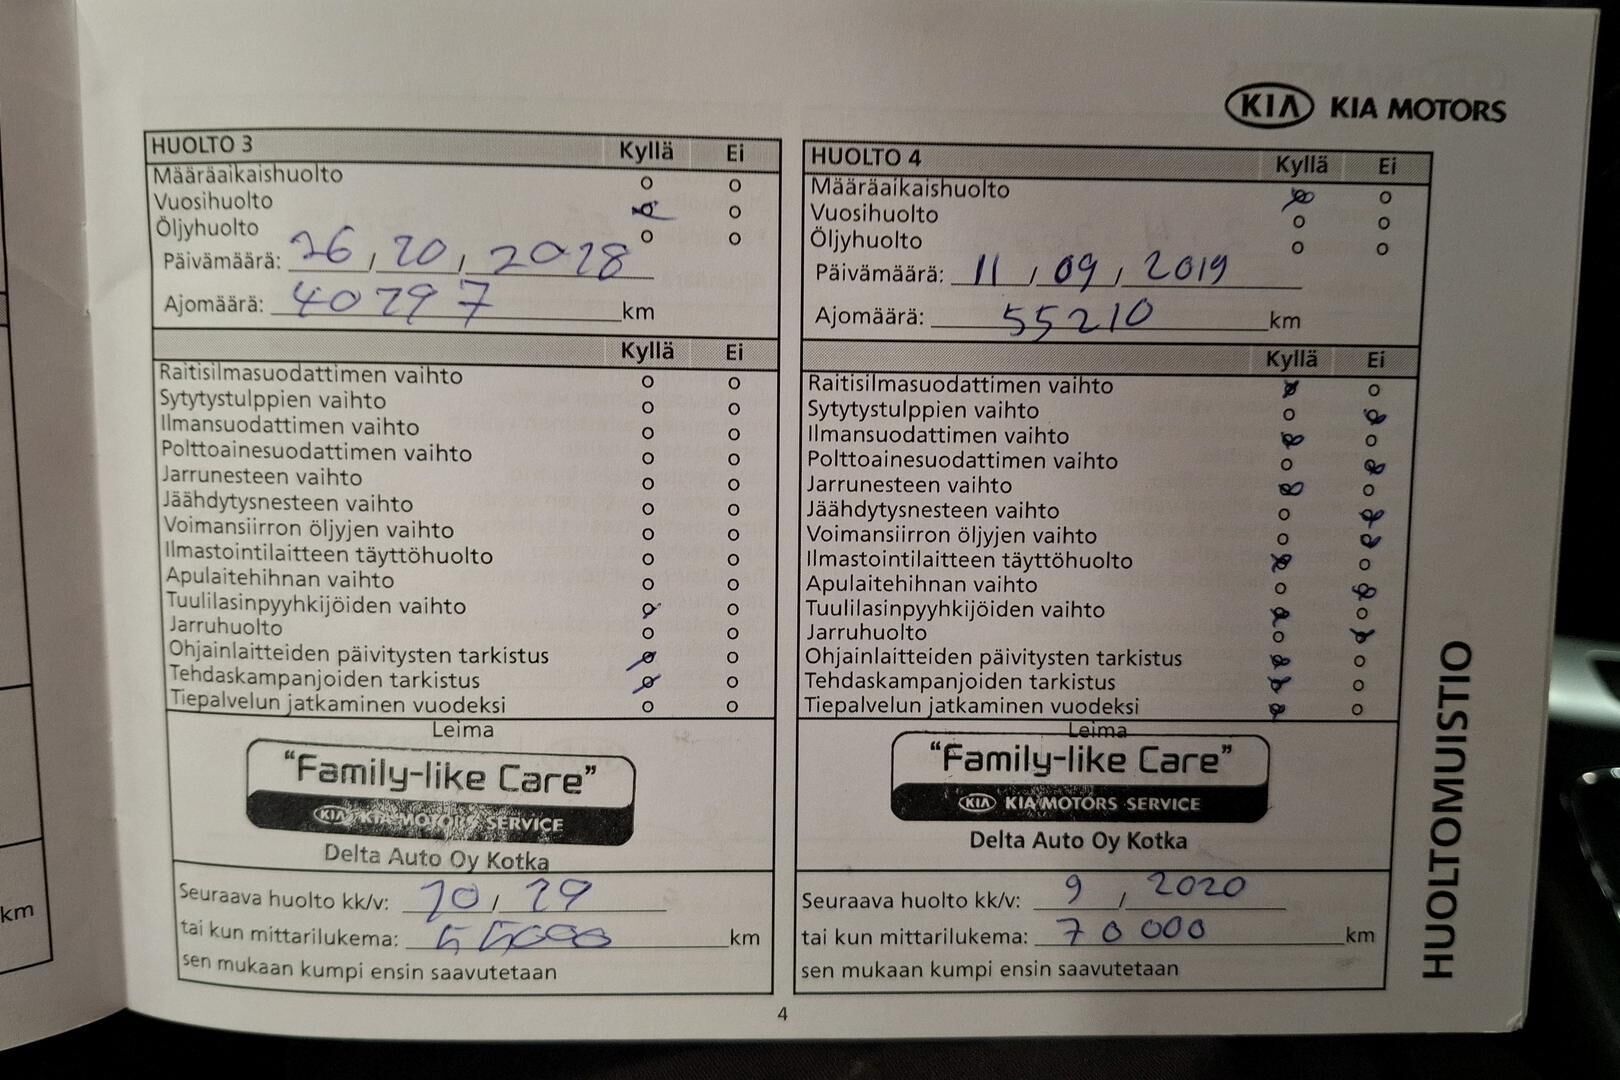 KIA KIA MOTORS
HUOLTO 3 Kyllä Ei
Määräaikaishuolto o o
Vuosihuolto o
Öljyhuolto o o
Päivämäärä: 26, 10, 2018
Ajomäärä: 40297 km
Kyllä Ei
Raitisilmasuodattimen vaihto o o
Sytytystulppien vaihto o o
Ilmansuodattimen vaihto o o
Polttoainesuodattimen vaihto o o
Jarrunesteen vaihto o o
Jäähdytysnesteen vaihto o o
Voimansiirron öljyjen vaihto o o
Ilmastointilaitteen täyttöhuolto o o
Apulaitehihnan vaihto o o
Tuulilasinpyyhkijöiden vaihto o
Jarruhuolto o o
Ohjainlaitteiden päivitysten tarkistus o
Tehdaskampanjoiden tarkistus o
Tiepalvelun jatkaminen vuodeksi o o
Leima
"Family-like Care"
KIA KIA MOTORS SERVICE
Delta Auto Oy Kotka
Seuraava huolto kk/v: 10, 19
tai kun mittarilukema: 55000 km
sen mukaan kumpi ensin saavutetaan
HUOLTO 4 Kyllä Ei
Määräaikaishuolto o
Vuosihuolto o o
Öljyhuolto o o
Päivämäärä: 11, 09, 2019
Ajomäärä: 55210 km
Kyllä Ei
Raitisilmasuodattimen vaihto o
Sytytystulppien vaihto o
Ilmansuodattimen vaihto o
Polttoainesuodattimen vaihto o
Jarrunesteen vaihto o
Jäähdytysnesteen vaihto o
Voimansiirron öljyjen vaihto o
Ilmastointilaitteen täyttöhuolto o
Apulaitehihnan vaihto o
Tuulilasinpyyhkijöiden vaihto o
Jarruhuolto o
Ohjainlaitteiden päivitysten tarkistus o
Tehdaskampanjoiden tarkistus o
Tiepalvelun jatkaminen vuodeksi o
Leima
"Family-like Care"
KIA KIA MOTORS SERVICE
Delta Auto Oy Kotka
Seuraava huolto kk/v: 9, 2020
tai kun mittarilukema: 70 000 km
sen mukaan kumpi ensin saavutetaan
HUOLTOMUISTIO
4
km